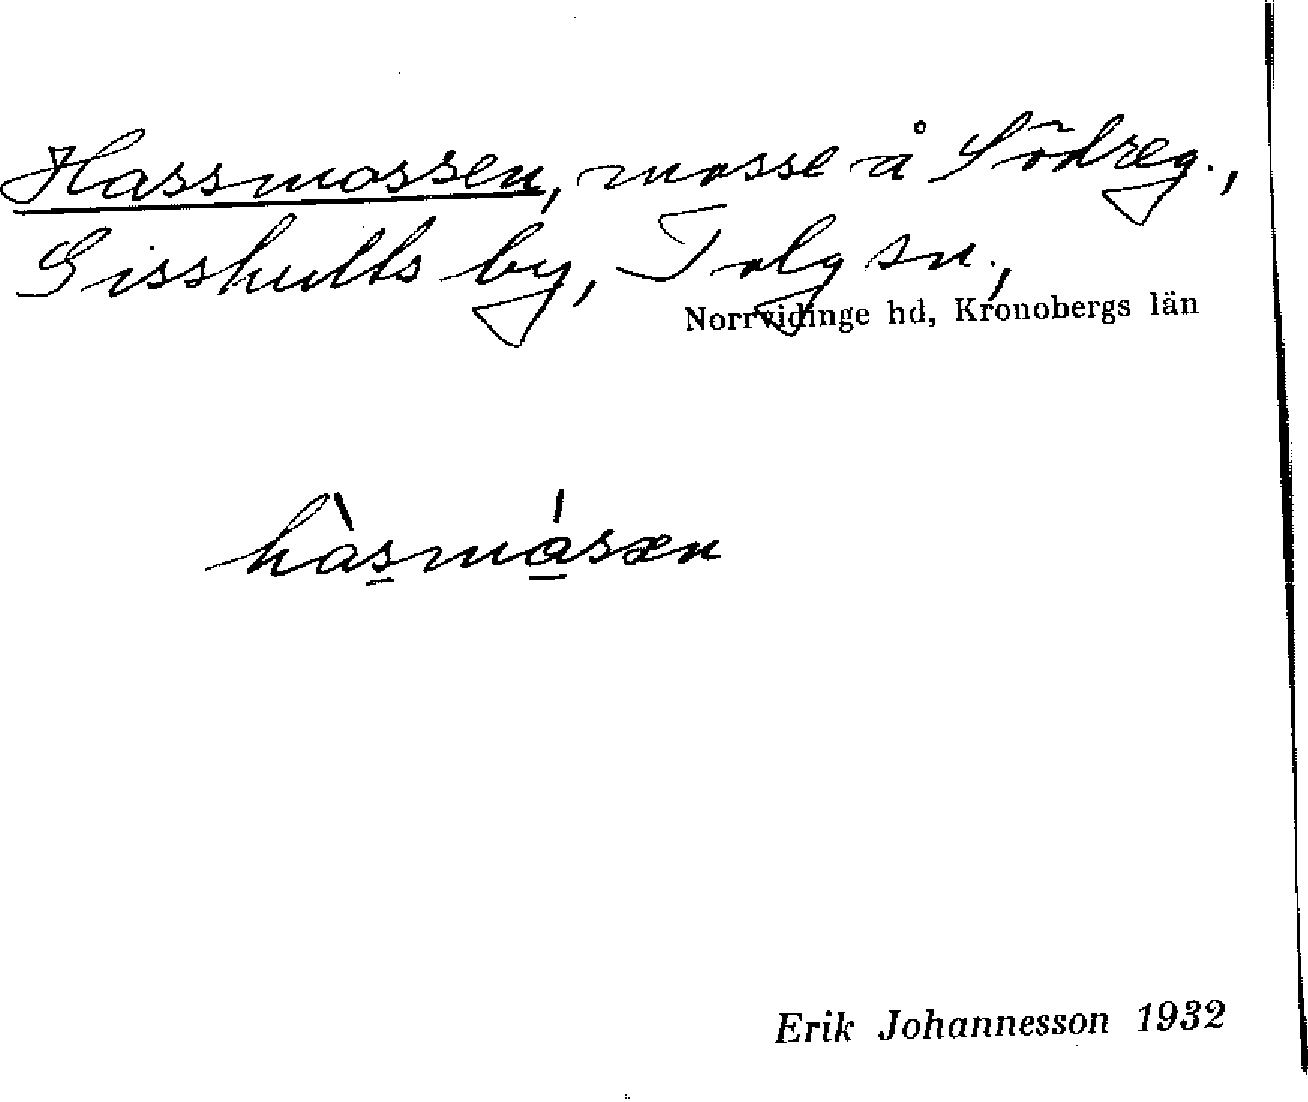 Hassmossen, mosse å Södreg.,
Gisshults by, Tolg sn.,
Norrvidinge hd, Kronobergs län
hàsmásen
Erik Johannesson 1932